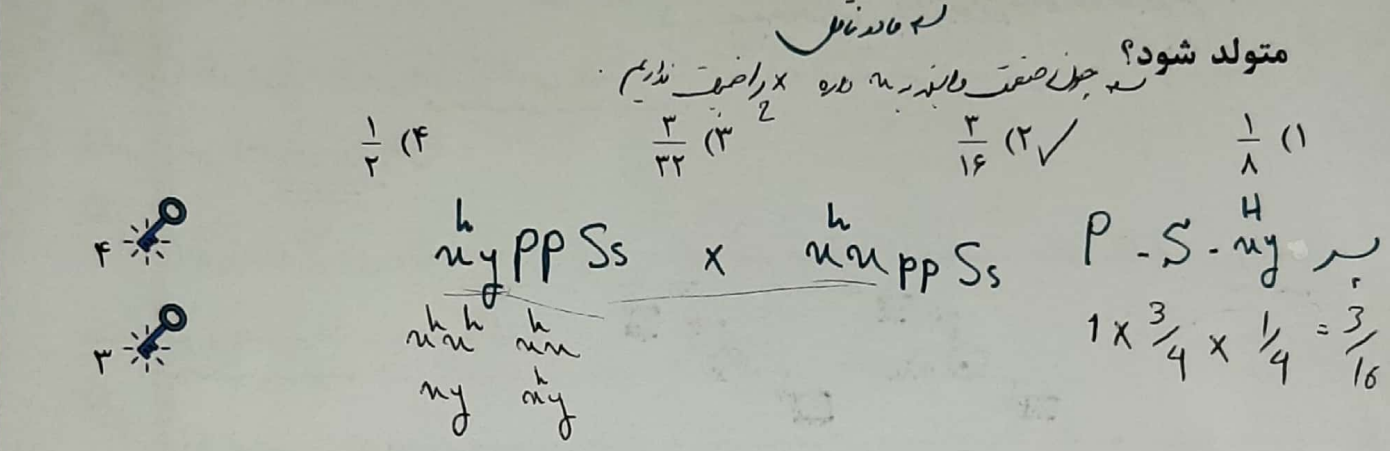 متولد شود؟
۱) ۱/۸ ۲) ۳/۱۶ ✓ ۳) ۳/۳۲ ۴) ۱/۲
P - S - x^H y پسر
x^h y PP Ss × x^h x pp Ss
1 × 3/4 × 1/4 = 3/16
x^h x^h x^h x
xy x^h y
۴
۳